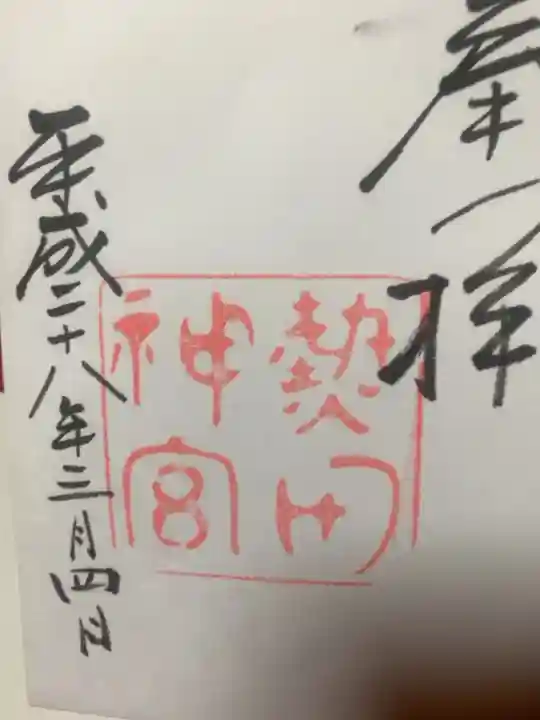 奉拝
熱田
神宮
平成二十八年三月四日